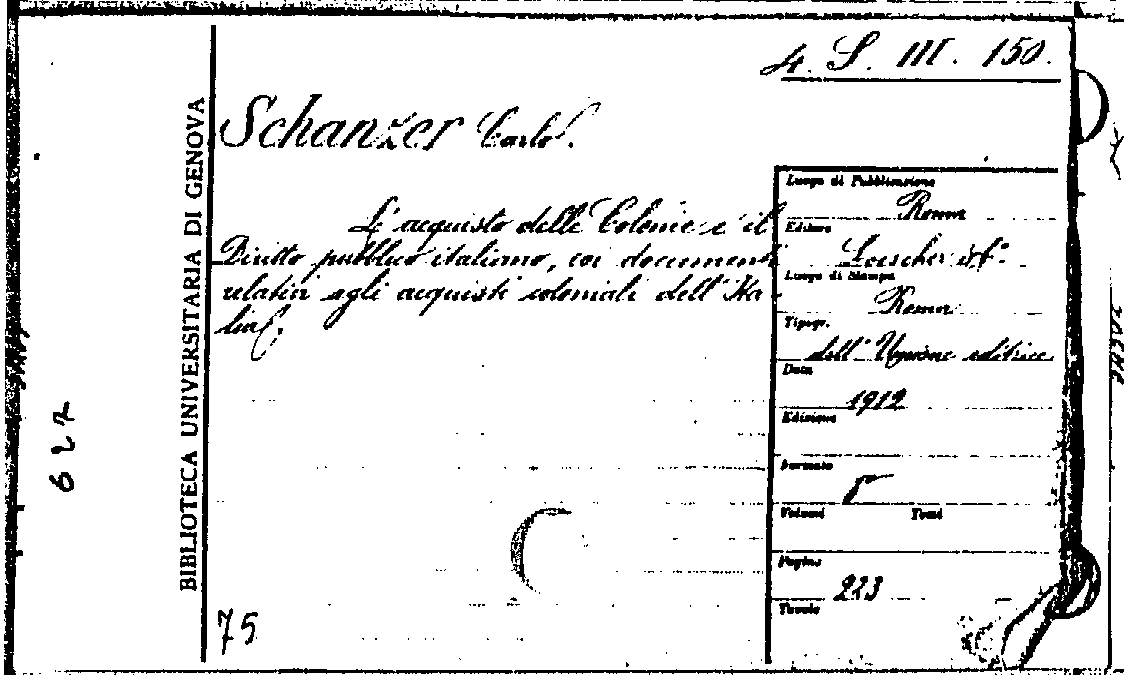 4. S. III. 150.
BIBLIOTECA UNIVERSITARIA DI GENOVA
Schanzer Carlo.
L'acquisto delle Colonie e il
Diritto pubblico italiano, coi documenti
relativi agli acquisti coloniali dell'Ita-
lia.
Luogo di Pubblicazione
Roma
Editore
Loescher
Luogo di Stampa
Roma
Tipogr.
dell'Unione editrice
Data
1912
Edizione
Formato
8°
Volumi Tomi
Pagine
223
Tavole
75
627